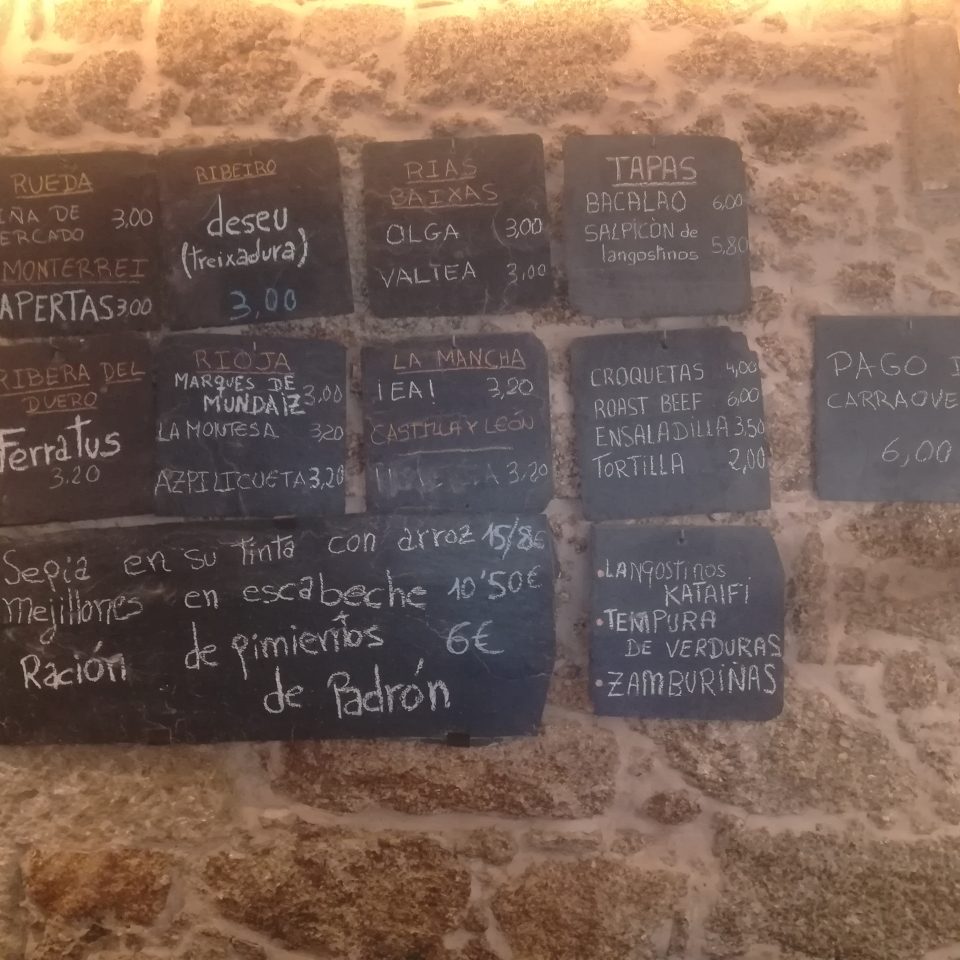 RUEDA
DE 3,00
MONTERREI
APERTAS 3,00
RIBEIRO
deseu
(treixadura)
3,00
RIAS
BAIXAS
OLGA 3,00
VALTEA 3,00
TAPAS
BACALAO 6,00
SALPICÒN de
langostinos 5,80
RIBERA DEL
DUERO
Ferratus
3.20
RIOJA
MARQUES DE
MUNDAIZ 3,00
LA MONTESA 3,20
AZPILICUETA 3,20
LA MANCHA
¡EA! 3,20
CASTILLA Y LEÓN
3,20
CROQUETAS 4,00
ROAST BEEF 6,00
ENSALADILLA 3,50
TORTILLA 2,00
PAGO
6,00
Sepia en su tinta con arroz 15/8€
Mejillones en escabeche 10'50€
Ración de pimientos 6€
de Padrón
•LANGOSTINOS
KATAIFI
•TEMPURA
DE VERDURAS
•ZAMBURIÑAS